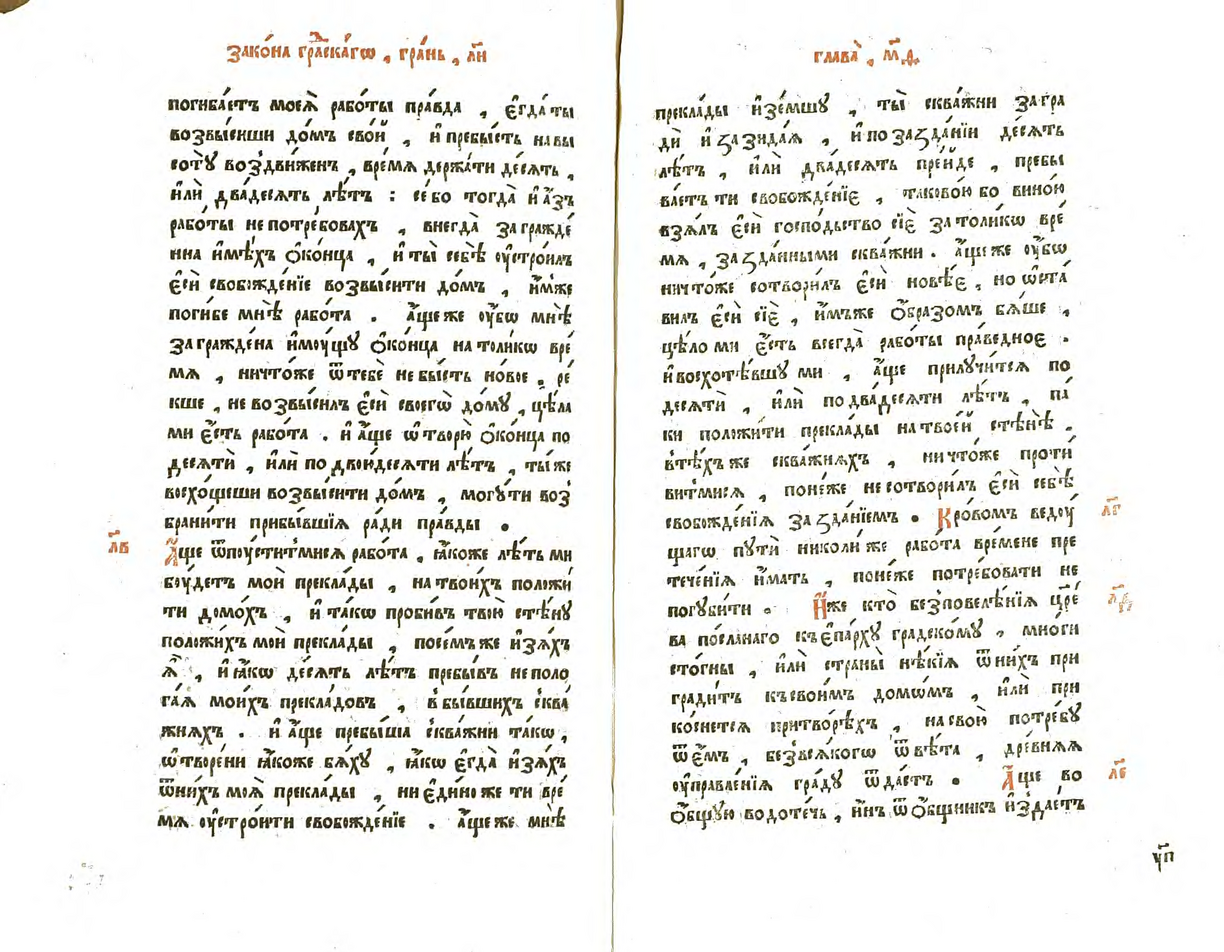 Зако́на гра́дскагѡ , гра́нь , л҃и
погиба́етъ моеѧ̀ рабо́ты пра́вда , є҆гда̀ ты̀
возвы́сиши до́мъ сво́й , и҆ пребы́сть на вы
сотꙋ̀ воздви́женъ , вре́мѧ держа́ти де́сѧть ,
и҆лѝ два́десѧть лѣ́тъ : се́ бо тогда̀ и҆ а҆́зъ
рабо́ты не потре́бовахъ , внегда̀ загражде́
нна и҆мѣ́хъ ѻ҆ко́нца , и҆ ты̀ себѣ̀ ᲂу҆стро́илъ
є҆сѝ свобожде́нїе возвы́сити до́мъ , и҆́мже
поги́бе мнѣ̀ рабо́та . А҆́ще же ᲂу҆́бѡ мнѣ̀
загражде́на и҆мꙋ́щꙋ ѻ҆ко́нца на толи́кѡ вре́
мѧ , ничто́же ѿ тебѐ не бы́сть но́вое , ре́
кше , не возвы́силъ є҆сѝ своегѡ̀ до́мꙋ , цѣ́ла
ми є҆́сть рабо́та . и҆ а҆́ще ѿтворю̀ ѻ҆ко́нца по
десѧтѝ , и҆лѝ по двоюдесѧтѝ лѣ́тъ , ты́ же
восхо́щеши возвы́сити до́мъ , могꙋ́ ти воз
брани́ти прибы́вшїѧ ра́ди пра́вды .
л҃в
А҆́ще ѿпꙋ́стит ми сѧ рабо́та , ꙗ҆́коже лѣ́ть ми
бꙋ́детъ моѝ прекла́ды , на твои́хъ положи́
ти домо́хъ , и҆ та́кѡ проби́въ твою̀ стѣ́нꙋ
положи́хъ моѝ прекла́ды , посе́мъ же и҆зѧ́хъ
ѧ҆̀ , и҆ ꙗ҆́кѡ де́сѧть лѣ́тъ пребы́въ не пола
га́ѧ мои́хъ прекла́довъ , в бы́вшихъ сква́
жнѧхъ . и҆ а҆́ще пребы́ша сква́жни та́кѡ ,
ѿтворе́ни ꙗ҆́коже бѧ́хꙋ , ꙗ҆́кѡ є҆гда̀ и҆зѧ́хъ
ѿ ни́хъ моѧ̀ прекла́ды , ни є҆ди́но же ти вре́
мѧ ᲂу҆стро́ити свобожде́нїе . А҆́ще же мнѣ̀
глава̀ , м҃ѳ.
прекла́ды и҆зе́мшꙋ , ты̀ сква́жни загра
дѝ и҆ заꙁида́ѧ , и҆ по заꙁда́нїи де́сѧть
лѣ́тъ , и҆лѝ два́десѧть пре́йде , пребы
ва́етъ ти свобожде́нїе , таково́ю бо вино́ю
взѧ́лъ є҆сѝ госпо́дьство сїѐ за толи́кѡ вре́
мѧ , заꙁда́нными сква́жни . а҆́ще же ᲂу҆́бѡ
ничто́же сотвори́лъ є҆сѝ но́вѣе , но ѡ҆ста́
вилъ є҆сѝ сїѐ , и҆́мъже ѻ҆́бразомъ бѧ́ше ,
цѣ́ло ми є҆́сть всегда̀ рабо́ты пра́ведное .
и҆ восхотѣ́вшꙋ ми , а҆́ще прилꙋчи́тсѧ по
десѧтѝ , и҆лѝ по два́десѧти лѣ́тъ , па́
ки положи́ти прекла́ды на твое́й стѣнѣ̀ ,
в тѣ́хъ же сква́жнѧхъ , ничто́же проти́
вит ми сѧ , поне́же не сотвори́лъ є҆сѝ себѣ̀
свобожде́нїѧ заꙁда́нїемъ . Кро́вомъ ведꙋ́
л҃г
щаго пꙋтѝ николи́же рабо́та вре́мене пре
тече́нїѧ и҆́мать , поне́же потребова́ти не
погꙋби́ти . И҆́же кто̀ без повелѣ́нїѧ цр҃е́
л҃д
ва по́сланаго къ є҆па́рхꙋ градско́мꙋ , мно́ги
сто́гны , и҆лѝ страны̀ нѣ́кїѧ ѿ ни́хъ при
гради́тъ къ свои́мъ домѡ́мъ , и҆лѝ при
ко́снетсѧ притво́рѣхъ , на свою̀ потре́бꙋ
ѿе́мъ , без всѧ́когѡ ѿвѣ́та , дре́внѧѧ
ᲂу҆правле́нїѧ гра́дꙋ ѿда́етъ . А҆́ще во
л҃е
ѻ҆́бщꙋю водоте́чь , и҆́нъ ѿ ѻ҆́бщникъ и҆зда́етъ
ꙋ҃п